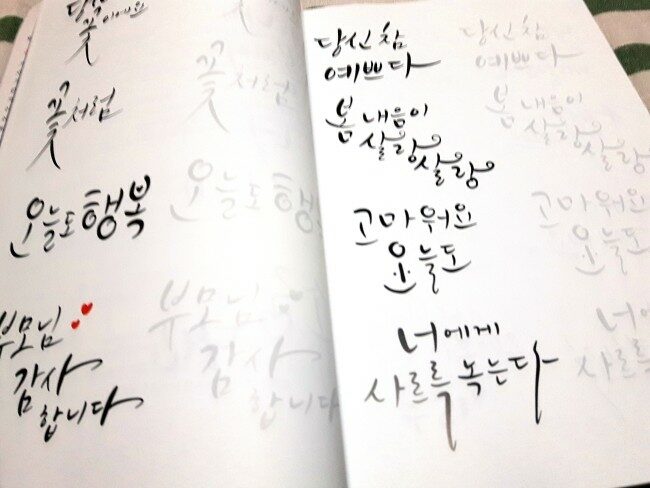 당신
꽃이에요
꽃처럼
오늘도 행복
부모님
감사
합니다
꽃
꽃처럼
오늘도 행
부모님
감사
합니다
당신 참
예쁘다
봄 내음이
살랑살랑
고마워요
오늘도
너에게
사르륵 녹는다
당신 참
예쁘다
봄 내음이
살랑살랑
고마워요
오늘도
너에
사르륵